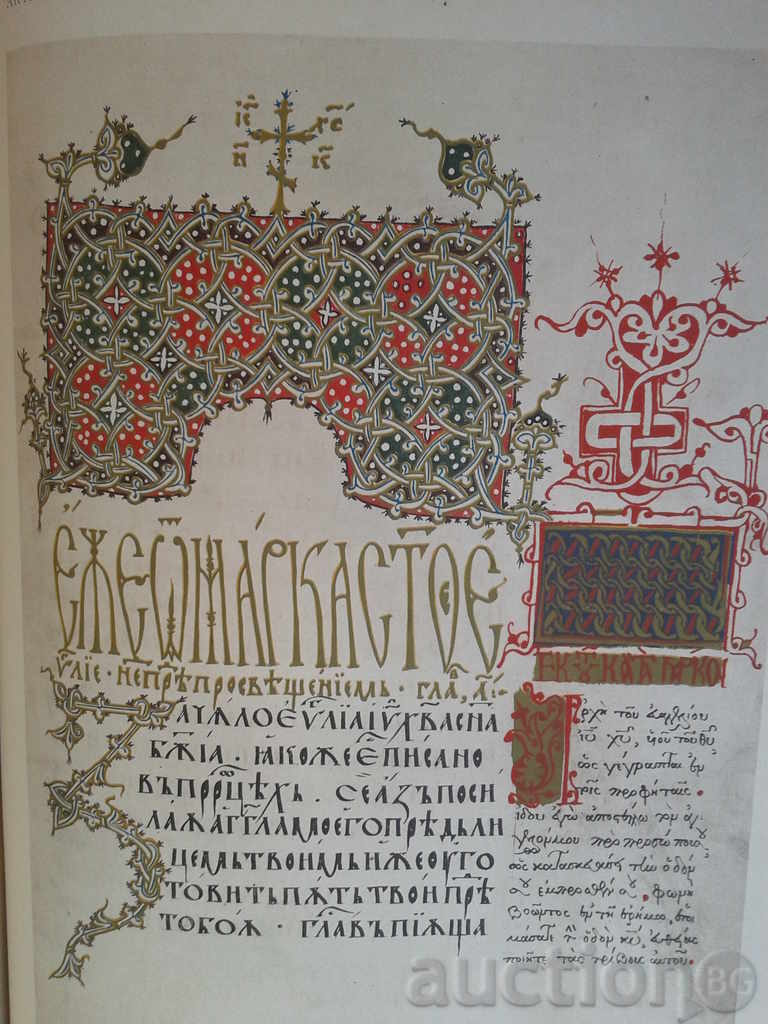 ІС ХС
НИ КА
Е҆ЖЕѾМАРКАСТОЕ
ѴЛІЕ · НЕПРѢПРОСВѢЩЕНІЕМЬ · ГЛА, А҃:
АЧѦЛОЕѴЛІАІУХВАСНА
БЖІА . ꙖКОЖЕЕПИСАНО
ВЪПРРОЦѢХЬ . СЕАЗЪПОСИ
ЛАѪАГГЛАМОЕГОПРѢДЬЛИ
ЦЕМЬТВОИМЬИЖЕОУГО
ТОВИТЬПѪТЬТВОИПРѢ
ТОБОѪ · ГЛАВЪПІѪЩА
ἐκ τοῦ κατὰ Μάρκον
ἀρχὴ τοῦ ἐυαγγελίου
ἰυ χυ, υἱοῦ τοῦ θυ
ὡς γέγραπται ἐν
τοῖς προφήταις .
ἰδου ἐγω ἀποστέλω τὸν ἄγ
γελόν μου πρὸ προσώπου σου
ὃς κατασκευάσει τὴν ὁδόν
σου ἔμπροσθέν σου . φωνὴ
βοῶντος ἐν τῇ ἐρήμω, ἑτοι
μάσατε τὴν ὁδὸν κυ, εὐθείας
ποιεῖτε τὰς τρίβους αὐτοῦ .
auction BG